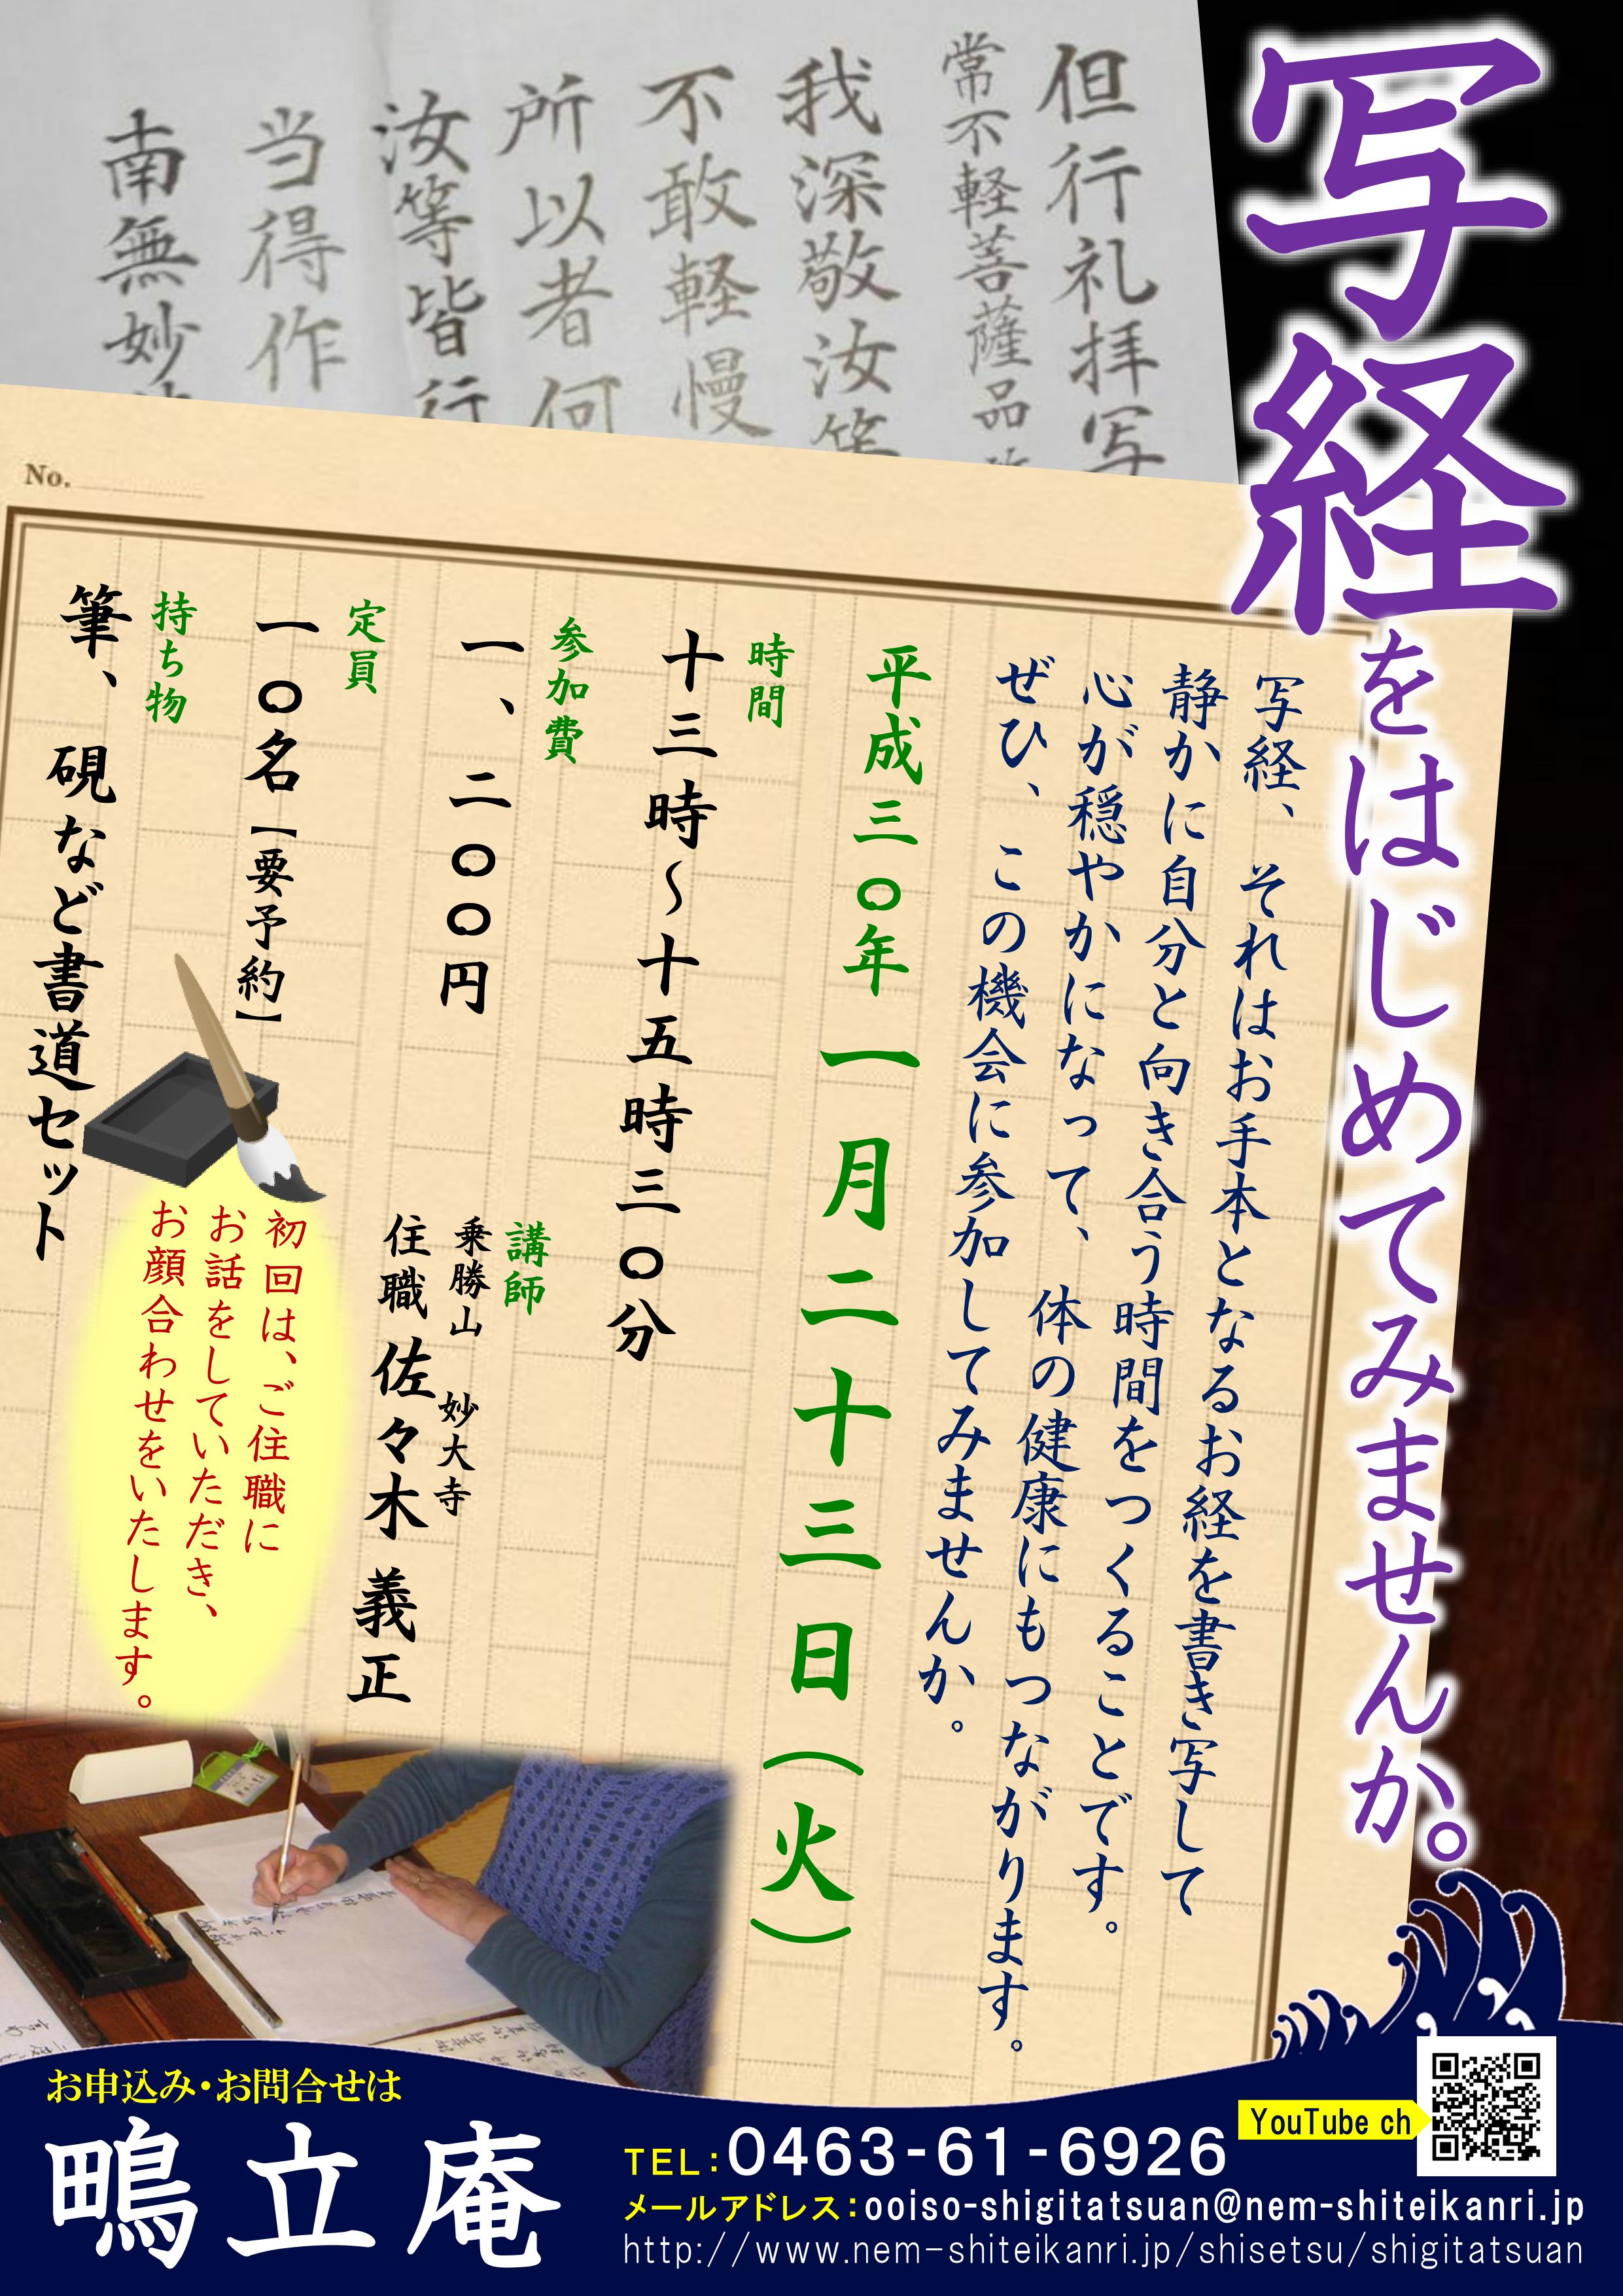 写経をはじめてみませんか。
但行礼拝写
常不軽菩薩品
我深敬汝等
不敢軽慢
所以者何
汝等皆行
当得作
南無妙
No.
写経、それはお手本となるお経を書き写して
静かに自分と向き合う時間をつくることです。
心が穏やかになって、体の健康にもつながります。
ぜひ、この機会に参加してみませんか。
平成三〇年一月二十三日（火）
時間
十三時～十五時三〇分
参加費
一、二〇〇円
講師
乗勝山 妙大寺
住職 佐々木 義正
定員
一〇名【要予約】
持ち物
筆、硯など書道セット
初回は、ご住職に
お話をしていただき、
お顔合わせをいたします。
お申込み・お問合せは
鴫立庵
TEL：0463-61-6926
YouTube ch
メールアドレス：ooiso-shigitatsuan@nem-shiteikanri.jp
http://www.nem-shiteikanri.jp/shisetsu/shigitatsuan